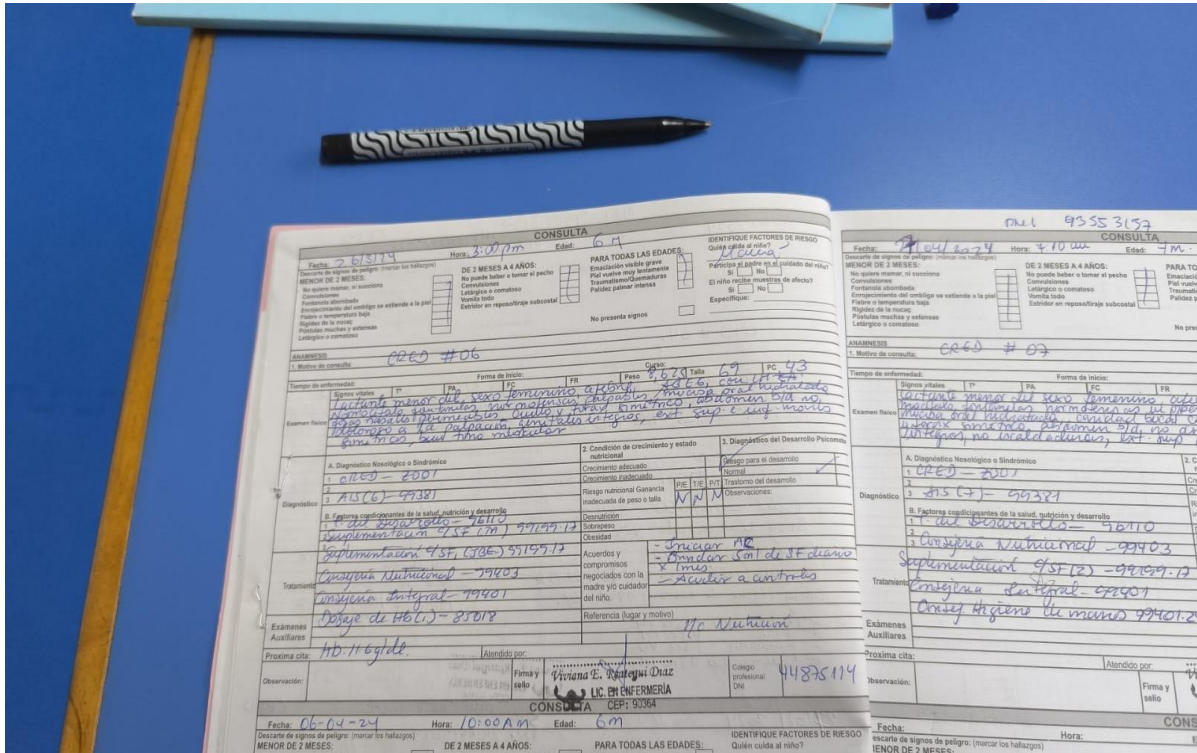 CONSULTA
Fecha: 26/3/24 Hora: 3:00 pm Edad: 6 M
Descarte de signos de peligro: (marcar los hallazgos)
MENOR DE 2 MESES:
No quiere mamar, ni succiona
Convulsiones
Fontanela abombada
Enrojecimiento del ombligo se extiende a la piel
Fiebre o temperatura baja
Rigidez de la nuca
Pústulas muchas y extensas
Letárgico o comatoso
DE 2 MESES A 4 AÑOS:
No puede beber o tomar el pecho
Convulsiones
Letárgico o comatoso
Vomita todo
Estridor en reposo/tiraje subcostal
PARA TODAS LAS EDADES:
Emaciación visible grave
Piel vuelve muy lentamente
Traumatismo/Quemaduras
Palidez palmar intensa
No presenta signos
IDENTIFIQUE FACTORES DE RIESGO
Quién cuida al niño?
Participa el padre en el cuidado del niño?
Si No
El niño recibe muestras de afecto?
Si No
Especifique:
ANAMNESIS
1. Motivo de consulta: CRED # 06
Tiempo de enfermedad: Forma de inicio: Curso:
Signos vitales T° PA FC FR Peso 8,625 Talla 69 PC 43
Examen físico
Lactante menor del sexo femenino,
mucosa oral hidratada
fosas nasales permeables, cuello y torax simetrico, abdomen b/d no
doloroso a la palpación, genitales integros, ext. sup e inf. moviles
simetricas, buen tono muscular
Diagnóstico
A. Diagnóstico Nosológico o Sindrómico
1 CRED - Z001
2
3 AIS (6) - 99381
B. Factores condicionantes de la salud, nutrición y desarrollo
1 T. del Desarrollo - 96110
Suplementación 99199.17
Suplementación 99199.17
Tratamiento
Consejeria Nutricional - 99403
Consejeria Integral - 99401
Exámenes Auxiliares
Dosaje de Hb (1) - 85018
2. Condición de crecimiento y estado nutricional
Crecimiento adecuado
Crecimiento inadecuado
Riesgo nutricional Ganancia inadecuada de peso o talla
P/E T/E P/T
N N N
Desnutrición
Sobrepeso
Obesidad
3. Diagnóstico del Desarrollo Psicomotor
Riesgo para el desarrollo
Normal
Trastorno del desarrollo
Observaciones:
Acuerdos y compromisos negociados con la madre y/o cuidador del niño.
- Iniciar AC
- Brindar 5ml de SF diario
x 1 mes
- Acudir a controles
Referencia (lugar y motivo)
I/c Nutrición
Proxima cita: Hb: 11.6 g/dl.
Atendido por:
Observación:
Firma y sello
LIC. EN ENFERMERÍA
CEP: 90364
Colegio profesional DNI 44875114
CONSULTA
Fecha: 06-04-24 Hora: 10:00 AM Edad: 6m
Descarte de signos de peligro: (marcar los hallazgos)
MENOR DE 2 MESES:
DE 2 MESES A 4 AÑOS:
PARA TODAS LAS EDADES:
IDENTIFIQUE FACTORES DE RIESGO
Quién cuida al niño?
93553157
CONSULTA
Fecha: /04/2024 Hora: Edad: 7 M.
Descarte de signos de peligro: (marcar los hallazgos)
MENOR DE 2 MESES:
No quiere mamar, ni succiona
Convulsiones
Fontanela abombada
Enrojecimiento del ombligo se extiende a la piel
Fiebre o temperatura baja
Rigidez de la nuca
Pústulas muchas y extensas
Letárgico o comatoso
DE 2 MESES A 4 AÑOS:
No puede beber o tomar el pecho
Convulsiones
Letárgico o comatoso
Vomita todo
Estridor en reposo/tiraje subcostal
ANAMNESIS
1. Motivo de consulta: CRED # 07
Tiempo de enfermedad: Forma de inicio:
Signos vitales T° PA FC FR
Examen físico
Lactante menor del sexo femenino,
mucosa oral hidratada, cavidad bucal
y torax simetrico, abdomen b/d, no
integros, no escaldaduras, ext. sup
Diagnóstico
A. Diagnóstico Nosológico o Sindrómico
1 CRED - Z001
2
3 AIS (7) - 99381
B. Factores condicionantes de la salud, nutrición y desarrollo
1 T. del Desarrollo - 96110
2
3 Consejeria Nutricional - 99403
Suplementación (2) - 99199.17
Tratamiento
Consejeria Integral - 99401
Consej Higiene de manos 99401.2
Exámenes Auxiliares
Proxima cita:
Atendido por:
Observación:
Firma y sello
Fecha: Hora: